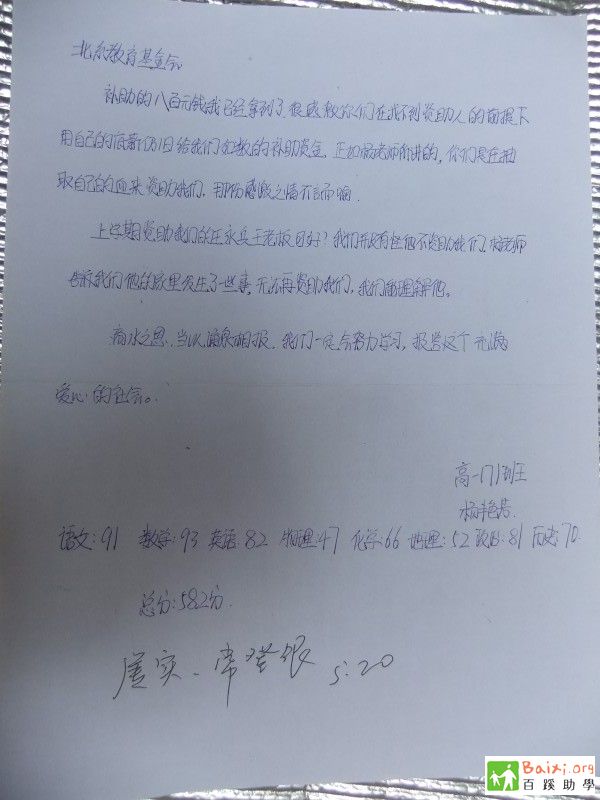 北京教育基金会:
补助的八百元钱我已经拿到了.很感激你们在找不到资助人的前提下
用自己的底薪仍旧给我们如数的补助资金.正如杨老师所讲的,你们是在抽
取自己的血来资助我们,那份感激之情不言而喻.
上学期资助我们的王永兵王老板可好?我们并没有怪他不资助我们,杨老师
告诉我们他的家里发生了一些事,无法再资助我们,我们能理解他。
滴水之恩,当以涌泉相报.我们一定会努力学习,报答这个充满
爱心的社会。
高一171班
杨艳
语文:91 数学:93 英语:82 物理:47 化学:66 地理:52 政治:81 历史:70.
总分:582分.
属实、常登银 5:20
Baixi.org
百蹊助學